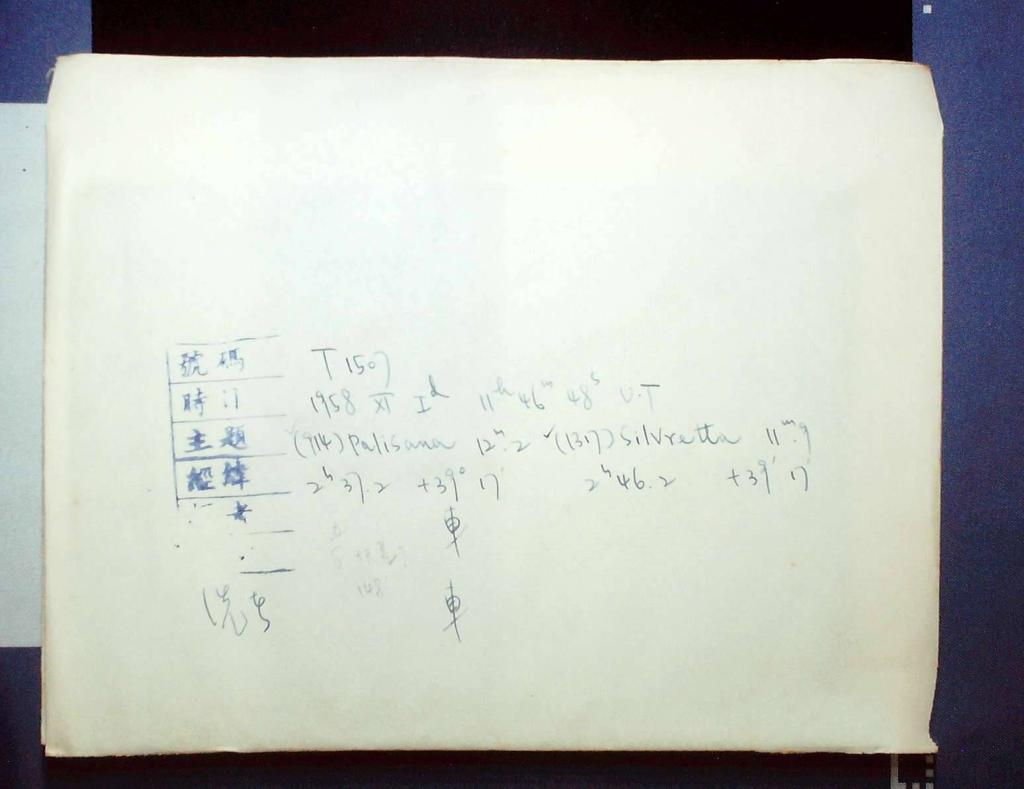 號碼 T 1507
時 1958 XI I^d 11^h 46^m 48^s U.T
主題 (914) Palisana 12^m.2 (1317) Silvretta 11^m.9
經緯 2^h 37.2 +39° 17' 2^h 46.2 +39° 17'
者 車
148
洗者 車